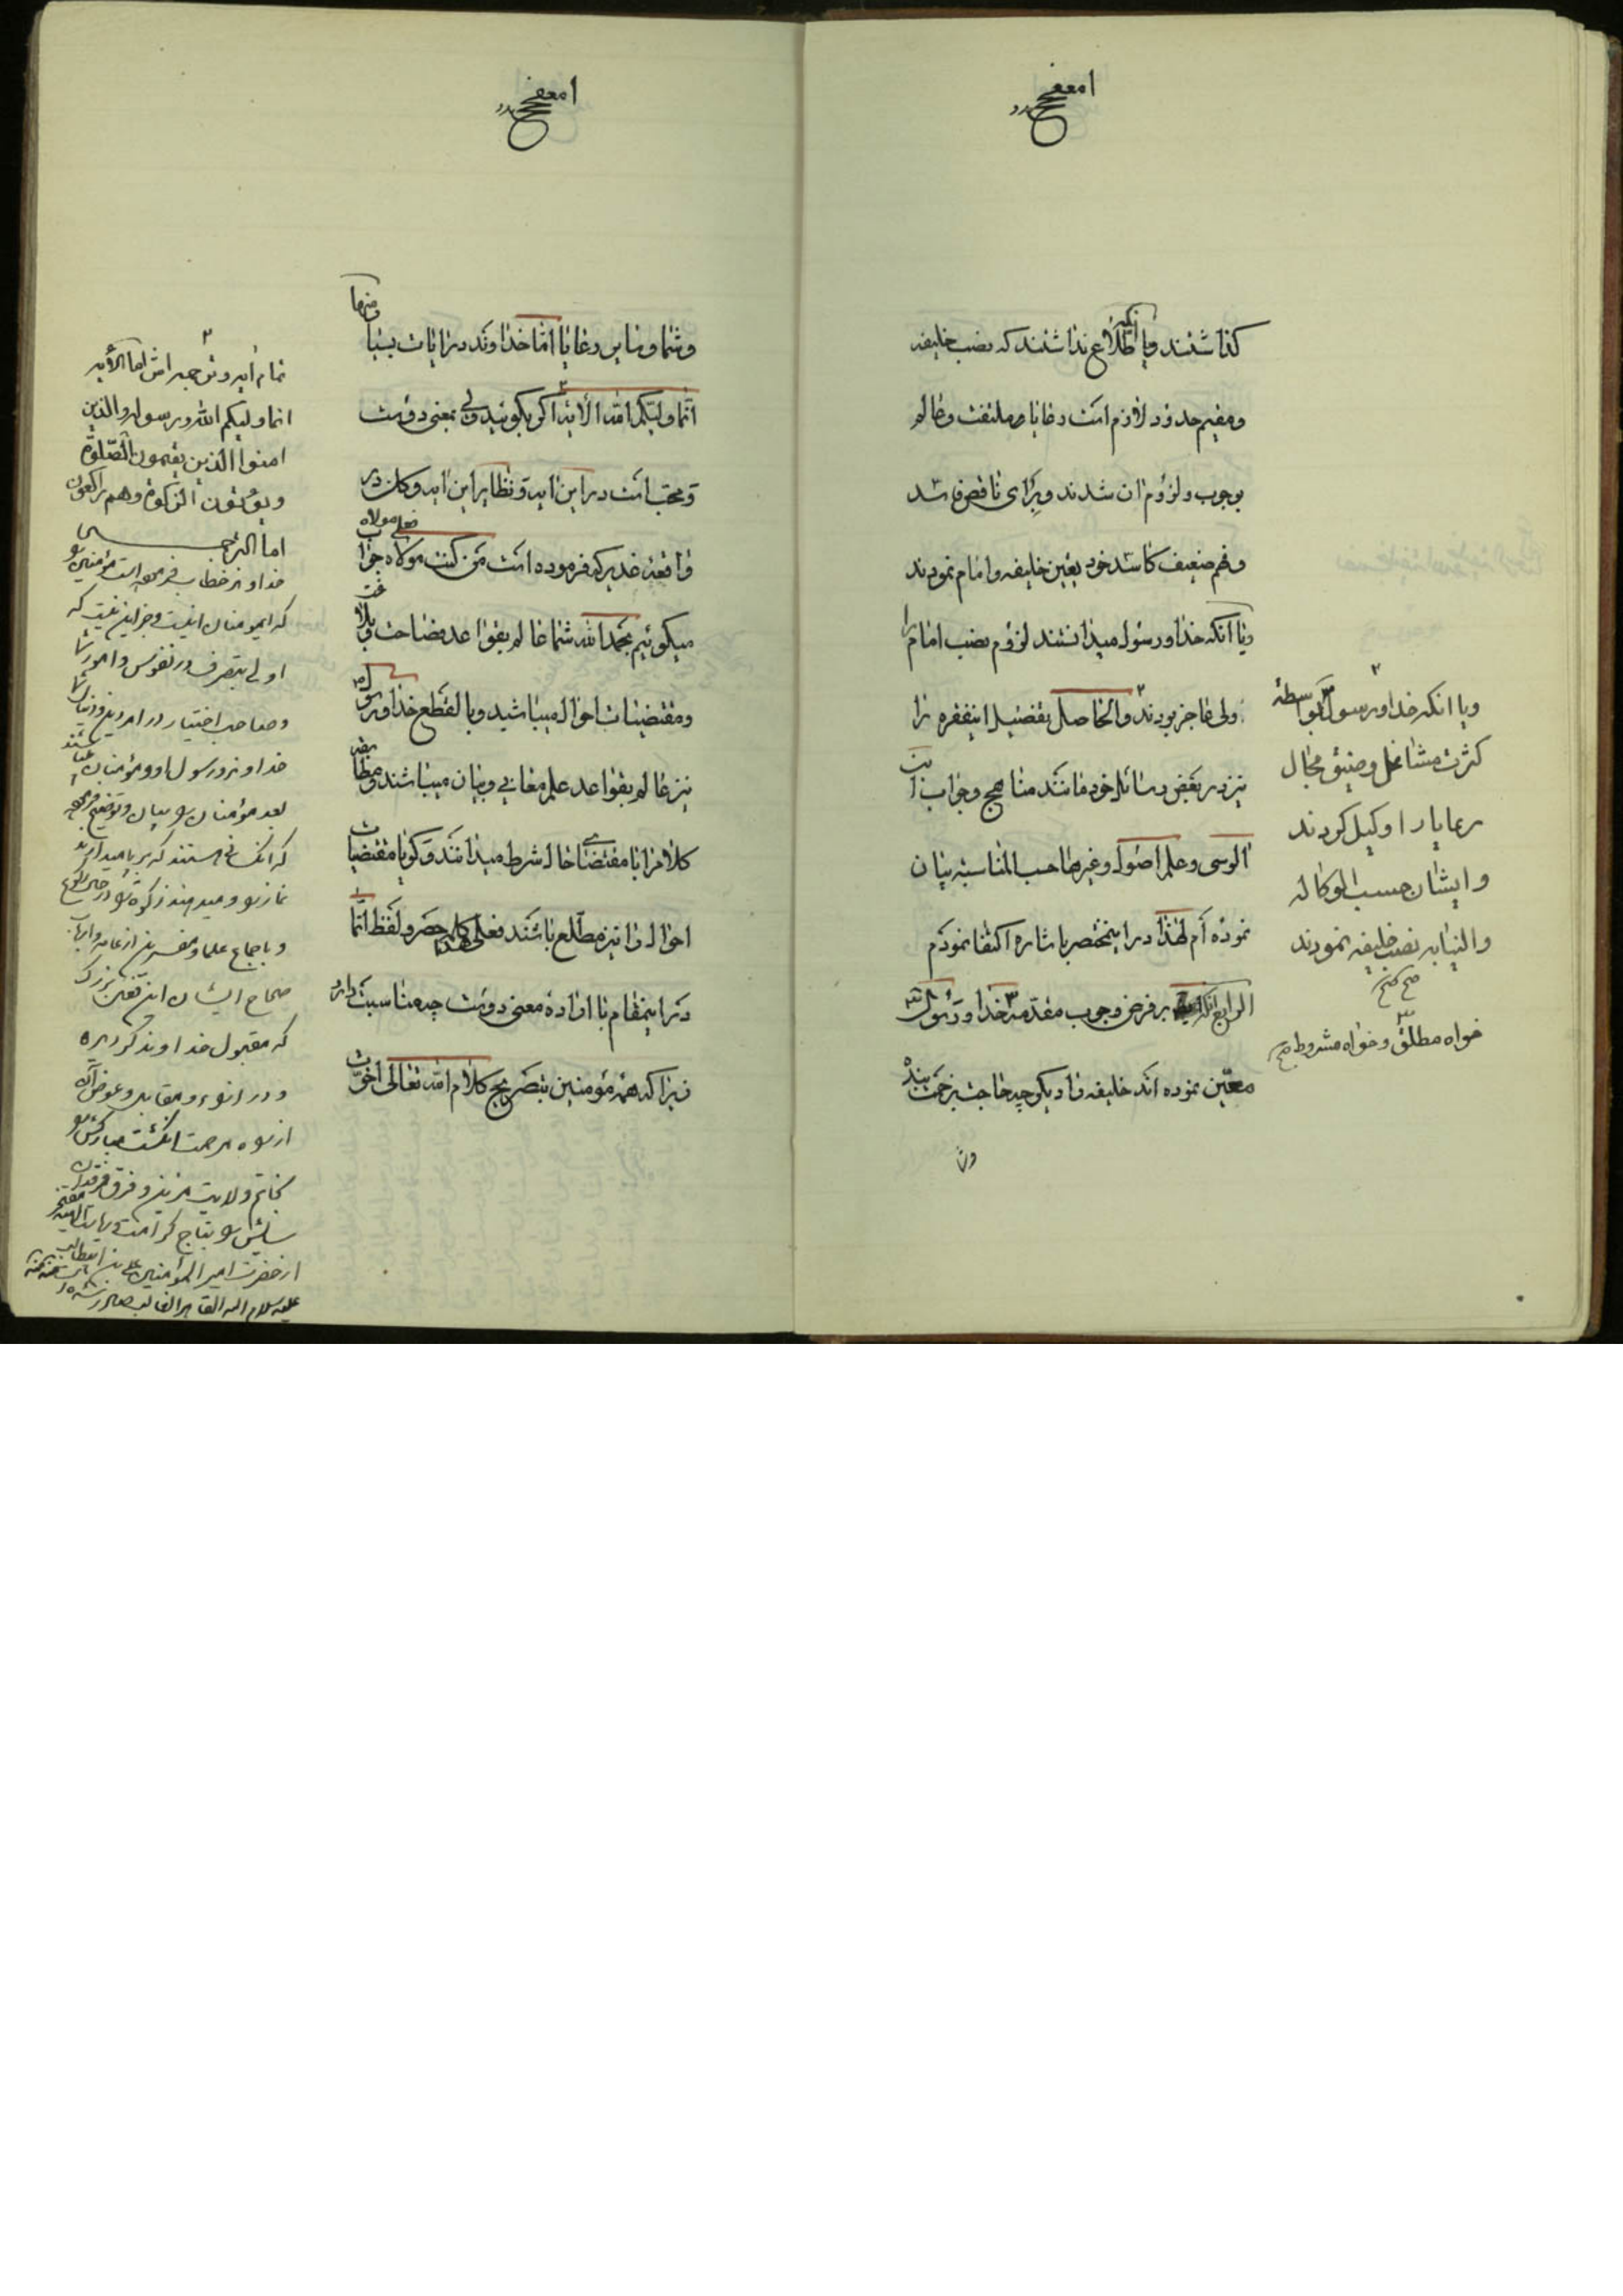 کذاشتند ویا انکه اطلاع نداشتند که نصب خلیفه
ومقیم حدود لازم است رعایا ملتفت وعالم
بوجوب ولزوم ان شدند وبرای ناقص فاسد
وفهم ضعیف کاسد خود تعین خلیفه وامام نمودند
ویا انکه خدا ورسول میدانستند لزوم نصب امام را
ولی عاجز بودند والحاصل تفضیل اینفقره را
نیز در بعض رسائل خود مانند مناهج وجواب
الوسی وعلم اصول وغیرها حسب المناسبة بیان
نموده ام لهذا در اینمختصر باشاره اکتفا نمودم
الرابع انکه بر فرض وجوب مقدمه خدا ورسول
معین نموده اند خلیفه را دیکر چه حاجت بزحمت بنده
وش
ویا انکه خدا ورسول بواسطهٔ
کثرت مشاغل وضیق مجال
رعایا را وکیل کردند
وایشان حسب الوکاله
والنیابه نصب خلیفه نمودند
صح
خواه مطلق وخواه مشروط صح
وشما وسایر رعایا اما خداوند در ایات بسیار منها
انما ولیکم الله الایه اکر بکوئید ولی بمعنی دوست
ومحب است در این ایه ونظایر این ایه وکان در
واقعهٔ غدیر که فرموده است من کنت مولاه فعلی مولاه جواب
میکوئیم بحمد الله شما عالم بقواعد فصاحت وبلاغت
ومقتضیات احوال میباشید وبالقطع خدا ورسول
نیز عالم بقواعد علم معانی وبیان میباشند
کلام را با مقتضای حال شرط میدانند وکویا مقتضیات
احوال را نیز مطلع باشند فعلی هذا کلمه حصر ولفظ انما
در اینمقام با ارادهٔ معنی دوست چه مناسبت دارد
زیرا که همه مؤمنین بتصریح کلام الله تعالی اخوت
تمام ایه وترجمه اش اما الآیه
انما ولیکم الله ورسوله والذین
امنوا الذین یقیمون الصلوة
ویؤتون الزکوة وهم راکعون
اما الترجمه
خداوند خطاب فرموده است مؤمنین
که ایمؤمنان اینست وجز این نیست که
اولی بتصرف در نفوس وامور شما
وصاحب اختیار در امر دین ودنیای شما
خداوند ورسول او ومؤمنان
بعد مؤمنان بیان وتوضیح فرموده
که انکسانی هستند که بر پا میدارند
نماز ومیدهند زکوة در حین رکوع
وباجماع علما ومفسرین از عامه وارباب
صحاح ایشان این بزرک
که مقبول خداوند کردیده
ودر ازاء ومقابل وعوض آن
از مرحمت انکشت مبارکش
بخاتم ولایت مزین وفرق فرقدان
سایش بتاج کرامت
از حضرت امیر المؤمنین علی بن ابیطالب
علیه سلام الله القاهر الغالب صادر شده